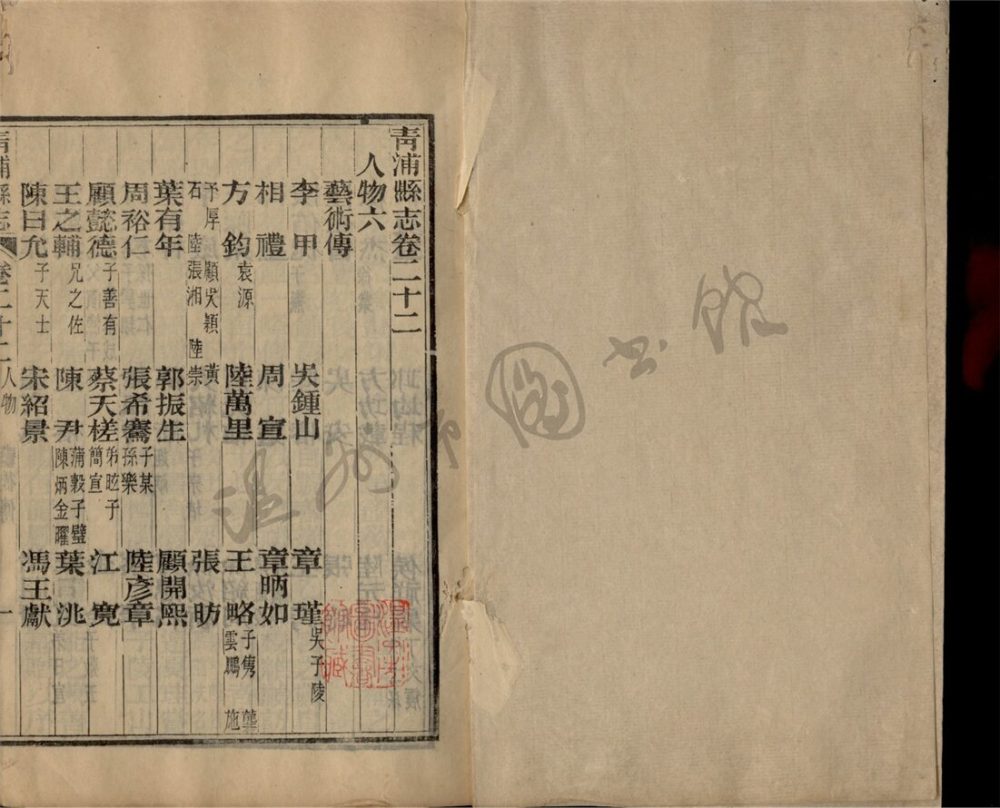 青浦縣志卷二十二
人物六
藝術傳
李甲 吳鍾山 章瑾吳子陵
相禮 周宣 章昞如
方鈞袁源 陸萬里 王略子雋 龔雲鵬 施
予厚 顧吳潁 黃
石 陸張湘 陸崇 張昉
葉有年 郭振生 顧開熙
周裕仁 張希騫子某孫樂 陸彥章
顧懿德子善有 蔡天槎弟昡子簡宣 江寬
王之輔兄之佐 陳尹蒲穀子璧陳炳金躍 葉洮
陳曰允子天士 宋紹景 馮王獻
青浦縣志 卷二十二 人物 一
溫州市圖書館